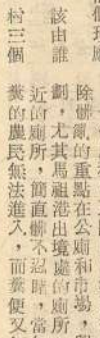 該由誰
除髒亂的重點在公廁和市場，
劃，尤其馬祖港出境處的廁所
近的廁所，簡直髒不忍睹，當
村三個
糞的農民無法進入，而糞便又